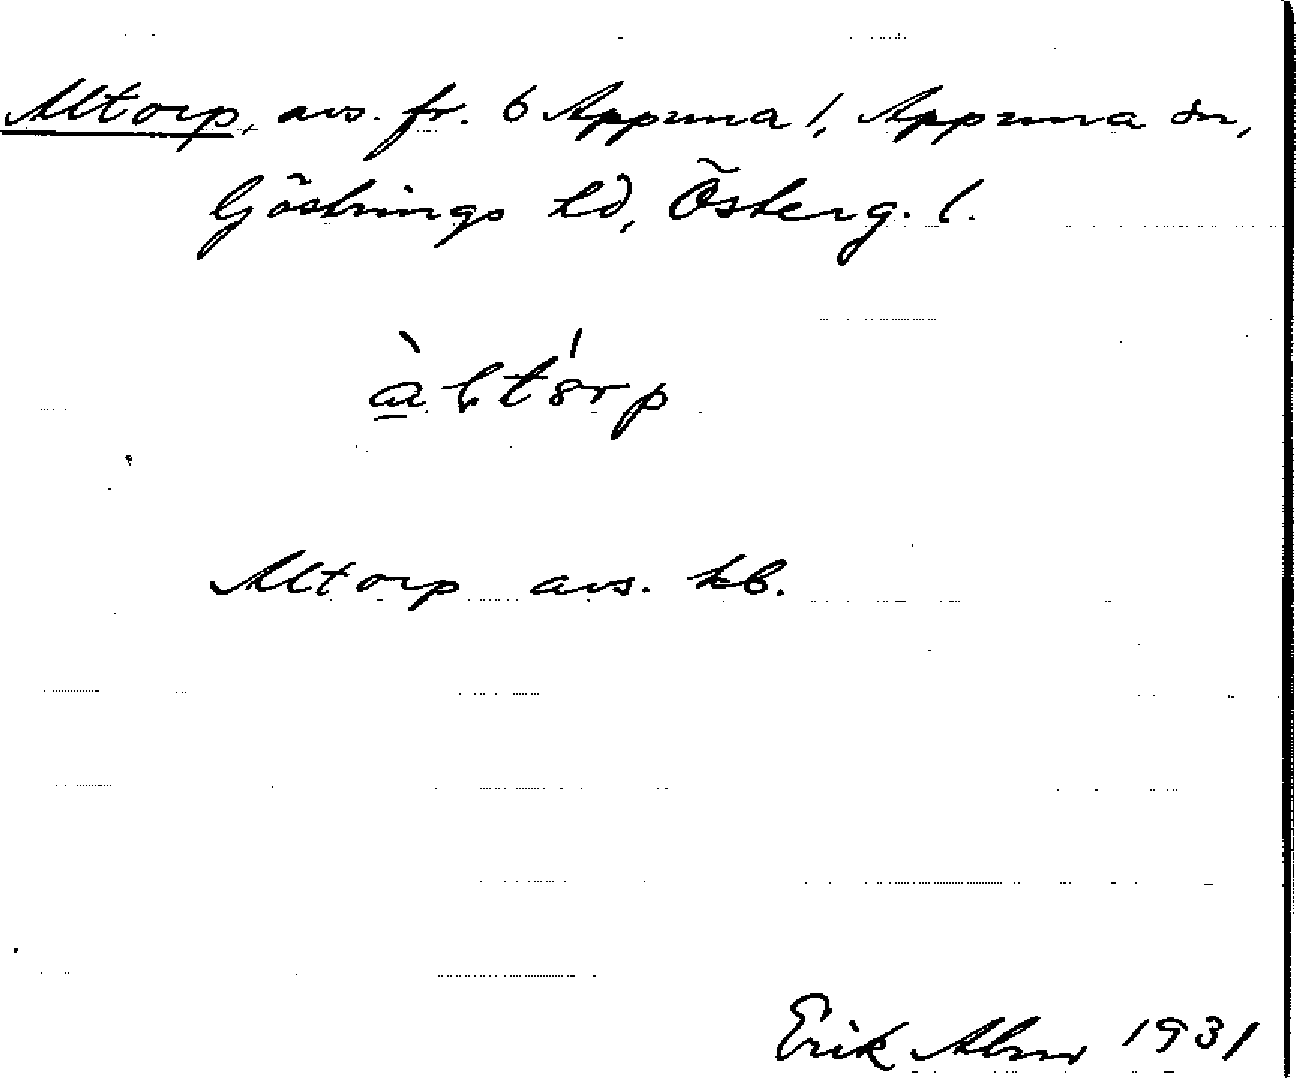 Altorp, avs. fr. 6 Appuna 1, Appuna sn,
Göstrings hd, Österg. l.
Altorp avs. kb.
Erik Alm 1931